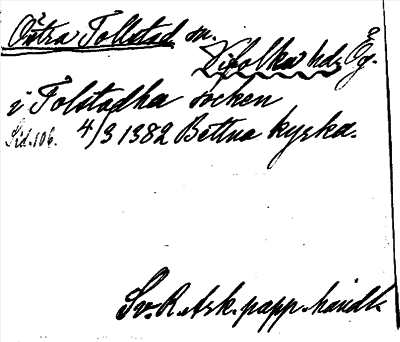 Östra Tollstad sn.
Vifolka hd, Ög.
i Tolstadha socken
Sid. 106. 4/3 1382 Bettna kyrka.
Sv. R. Ark. papp. handl.